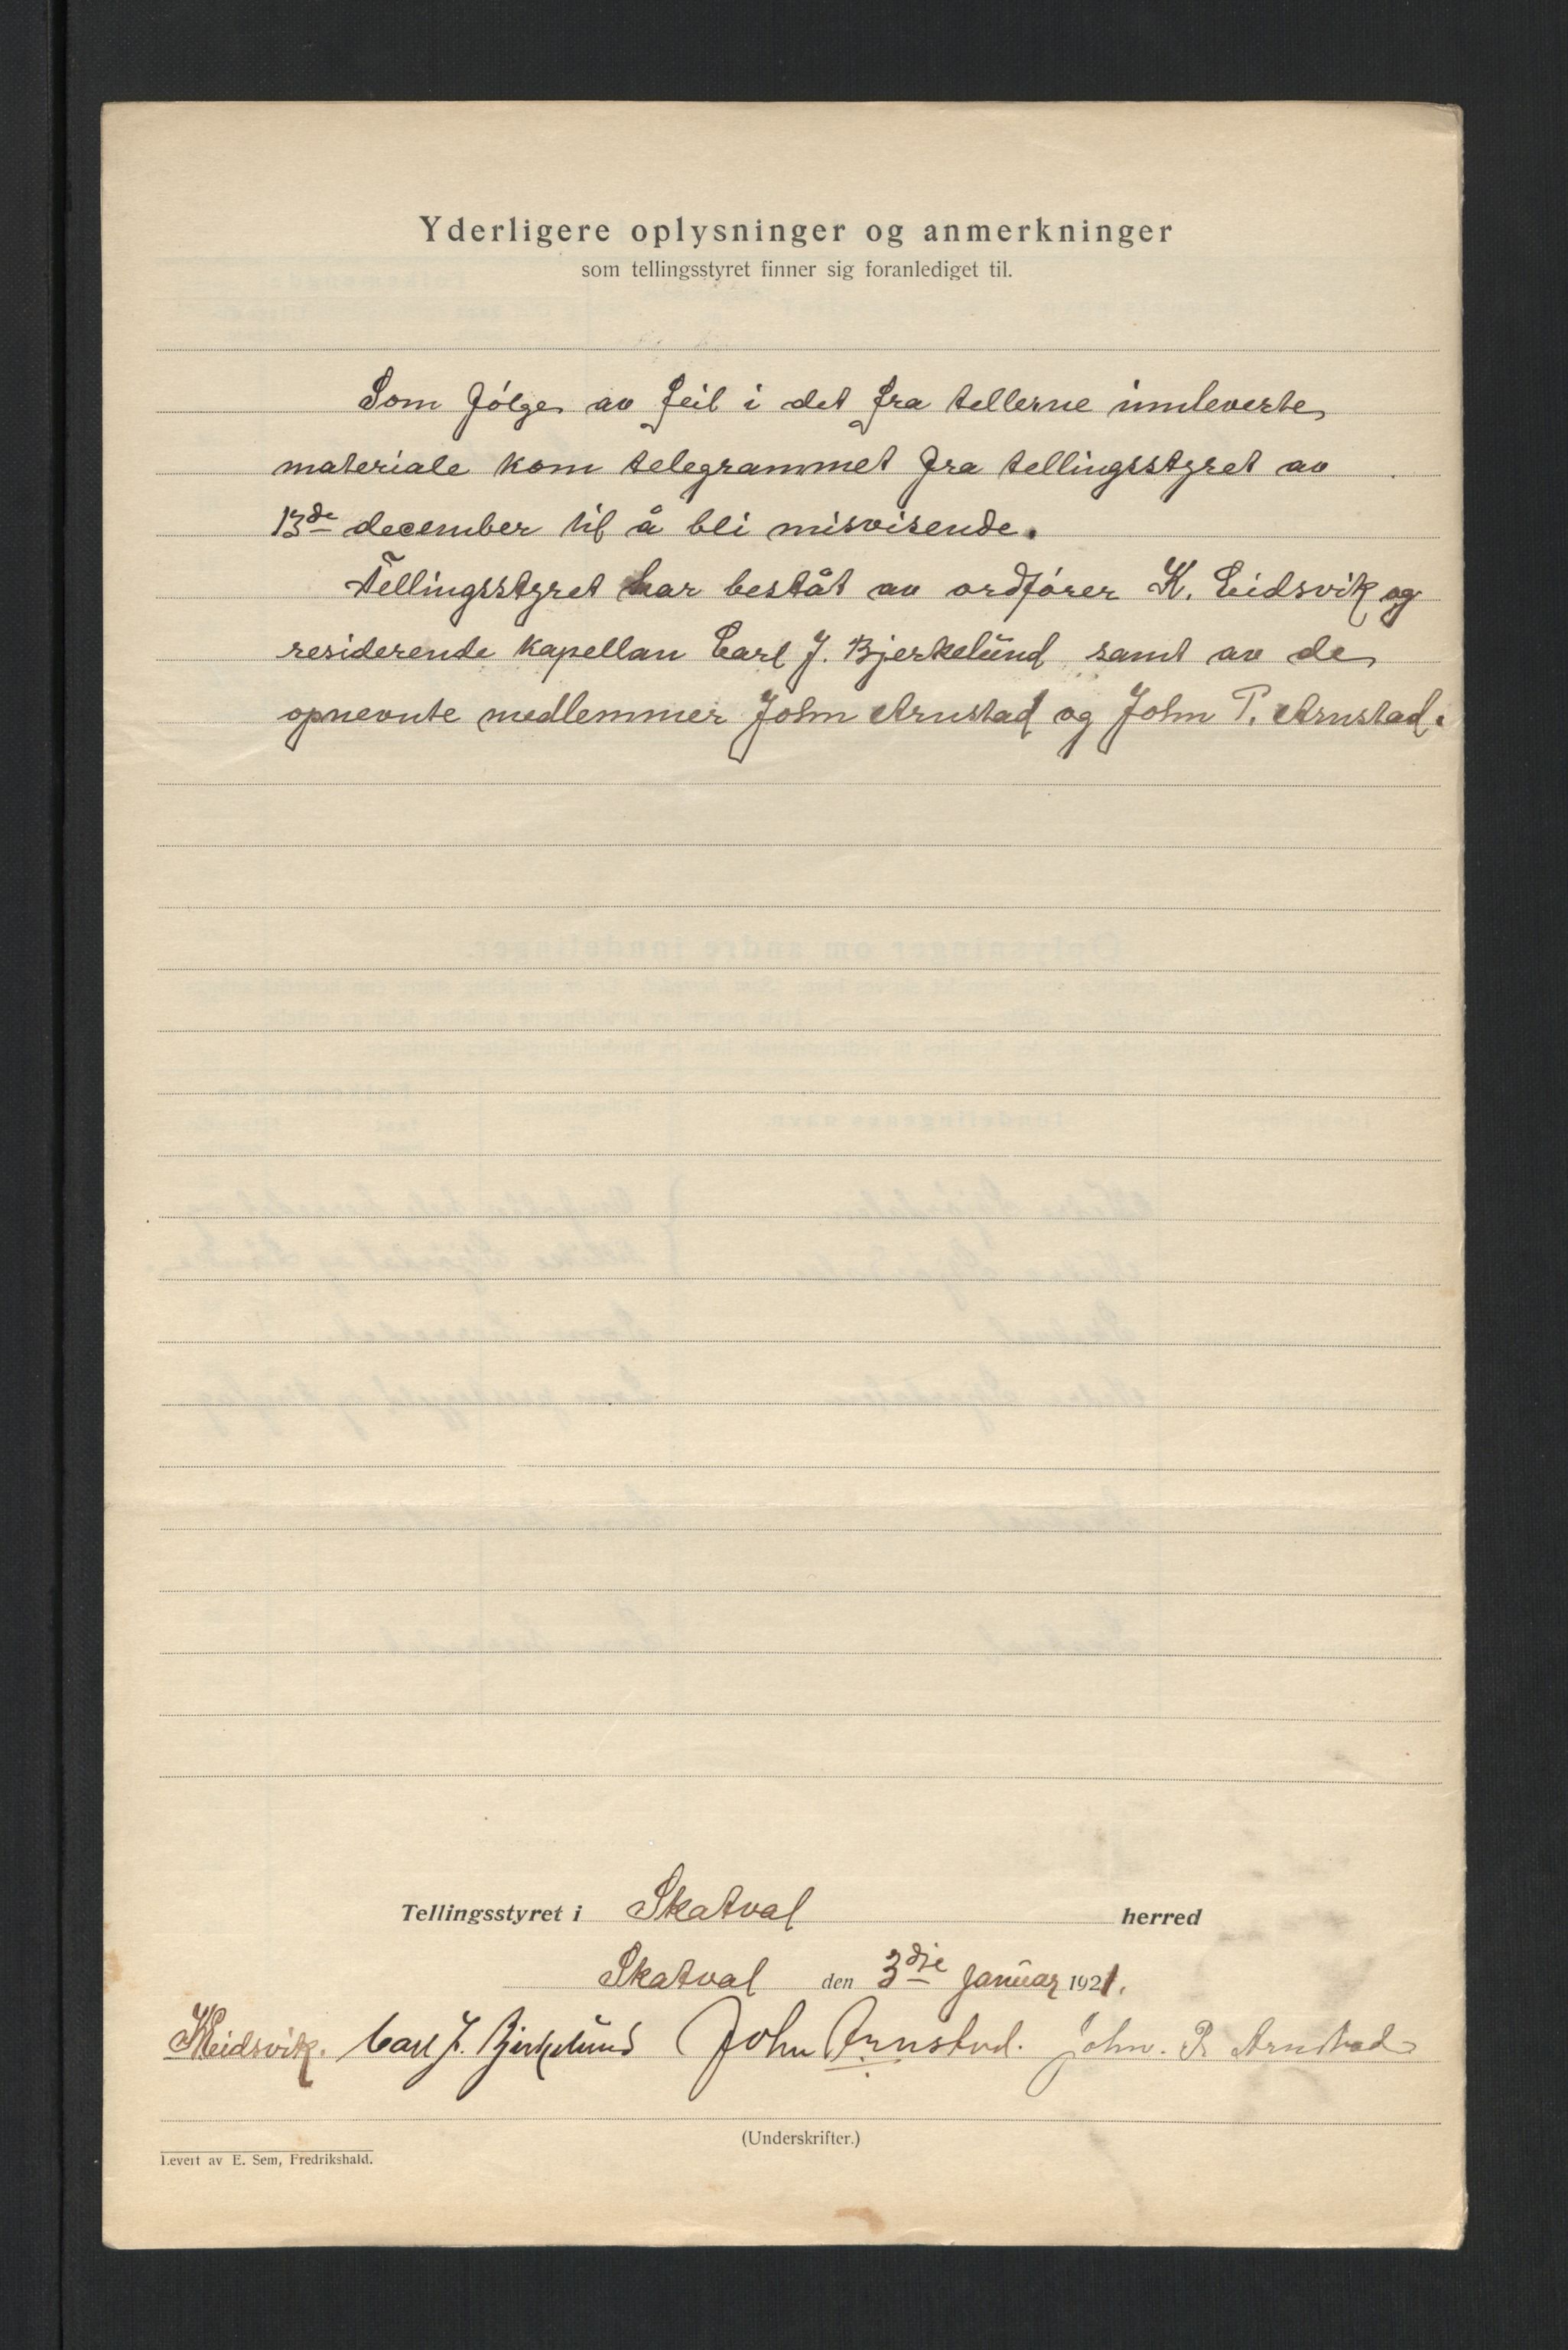 Yderligere oplysninger og anmerkninger
som tellingsstyret finner sig foranlediget til.
Som følge av feil i det fra tellerne innleverte
materiale kom telegrammet fra tellingsstyret av
13de december til å bli misvisende.
Tellingsstyret har beståt av ordfører K. Eidsvik og
residerende kapellan Carl J. Bjerkelund samt av de
opnevnte medlemmer John Arnstad og John P. Arnstad.
Tellingsstyret i Skatval herred
Skatval den 3die januar 1921.
K Eidsvik. Carl J. Bjerkelund John Arnstad. John. P. Arnstad
(Underskrifter.)
Levert av E. Sem, Fredrikshald.